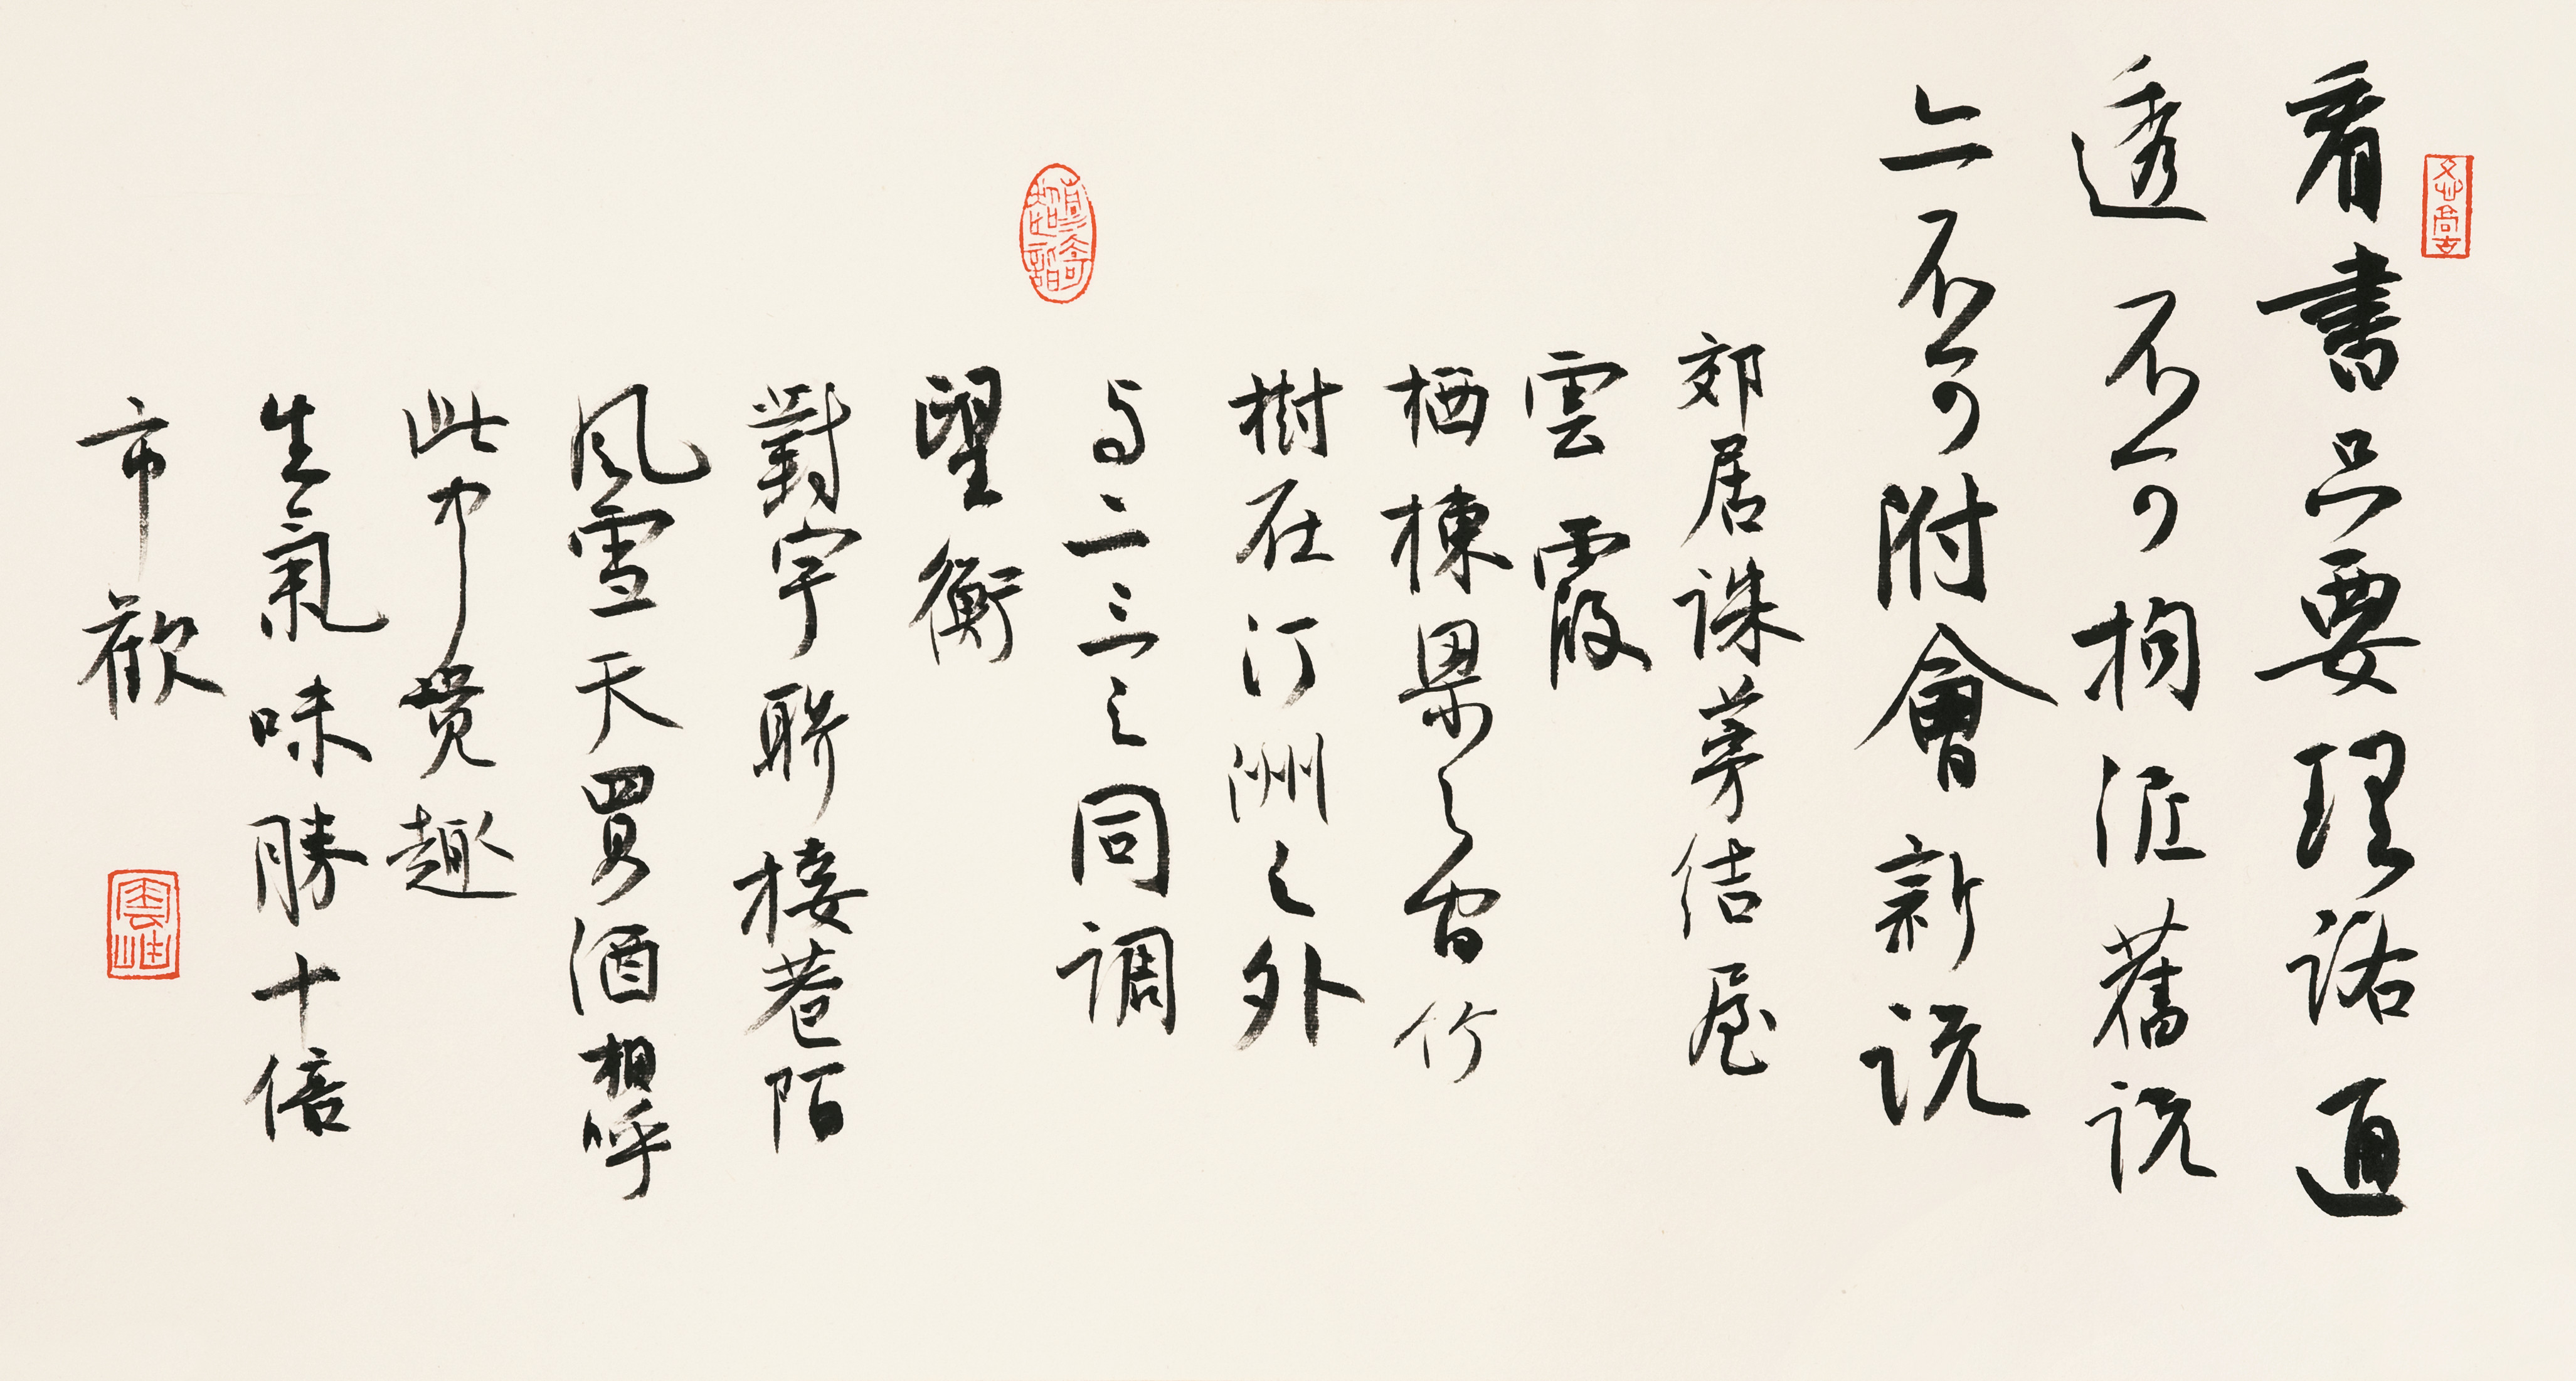 看書只要理路通
透不可拘泥舊說
亦不可附會新說
郊居誅茅結屋
雲霞
栖棟梁之間竹
樹在汀洲之外
与二三之同調
望衡
對宇聯接巷陌
风雪天買酒相呼
此中覺趣
生氣味勝十倍
市歡